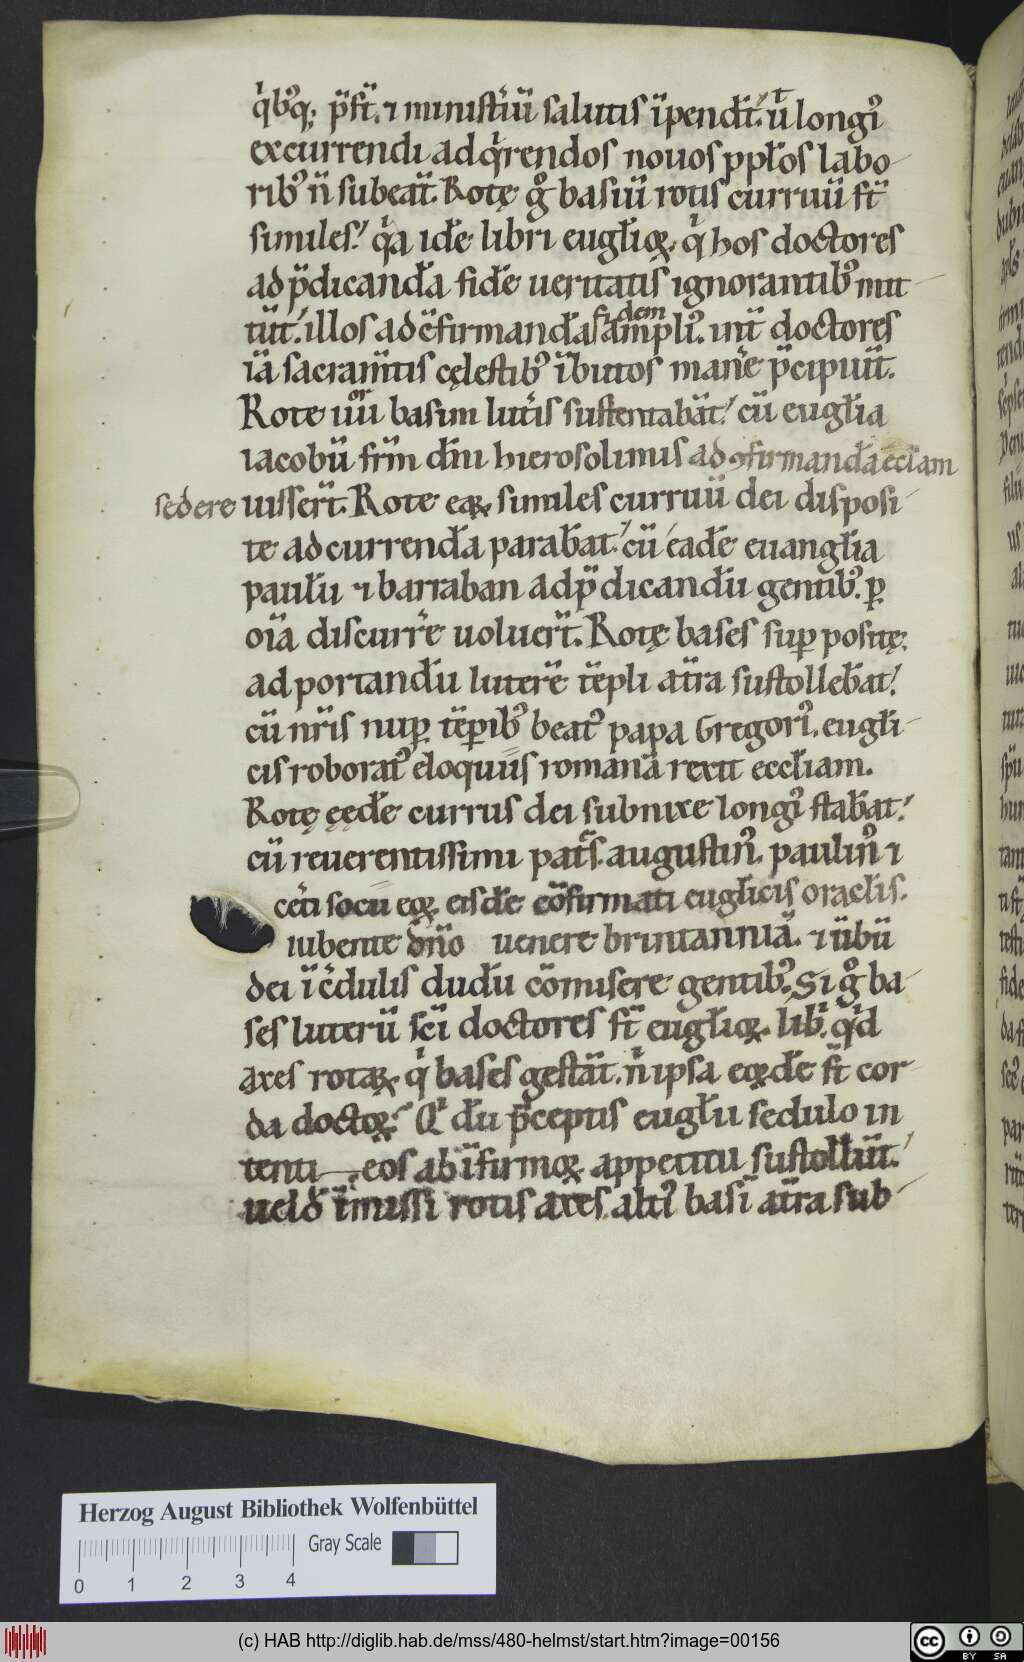 q̍bꝰq; p̄sſt̄. ⁊ miniſt̍iū salutis īpendt̄. ul̄ longiꝰ
excurrendi ad q̍rendos nouos ppl̄os labo
ribꝰ n̄ subeāt. Rotę gͦ basiū rotis curruū st̄
similes! q̍a idē libri euglīoꝝ. q̍ hos doctores
ad p̄dicandā fidē ueritatis ignorantibꝰ mit
tūt! illos ad cfirmandā fidem ampliꝰ. int̄ doctores
iā sacram̄tis cęlestibꝰ ībutos manē p̄cipiūt.
Rote uoͬū basim lut̍is sustentabāt! cū euglia
iacobū frm̄ dn̄i hierosolimis ad ꝯfirmandā eccl̄am
sedere uissert̄. Rote eaꝝ similes curruū dei disposi
te ad currendā parabat! cū eadē euanglia
paulū ⁊ barraban ad p̄dicandū gentibꝰ. ꝑ
oīa discurr̍e uoluert̄. Rotę bases suꝑ positę.
ad portandū luterē tēpli atr̄a sustollebat!
cū nr̄is nuꝑ tēꝑibꝰ beatꝰ papa Gregoriꝰ. eugli
cis roboratꝰ eloquiis romanā rexit eccl̄iam.
Rotę ęędē currus dei subnixe longiꝰ stabat!
cū reuerentissimi pat̄s. augustinꝰ. paulinꝰ ⁊
cet̍i socii eoꝝ eisdē cōfirmati euglicis oraclis.
iubente dn̄o uenere brintanniā. ⁊ ūbū
dei īc̍dulis dudū cōmisere gentibꝰ. Si gͦ ba
ses luterū sc̄i doctores st̄ euglioꝝ. lib̍. q̍d
axes rotaꝝ q̍ bases gestāt. n̍ ipsa eoꝝdē st̄ cor
da doctoꝝ? Qͥ dū p̄ceptis euglū sedulo in
tenti eos ab īfirmoꝝ appetitu sustollūt!
uelđ īmissi rotis axes. altiꝰ basī atr̄a sub
Herzog August Bibliothek Wolfenbüttel
Gray Scale
0 1 2 3 4
(c) HAB http://diglib.hab.de/mss/480-helmst/start.htm?image=00156
cc BY SA